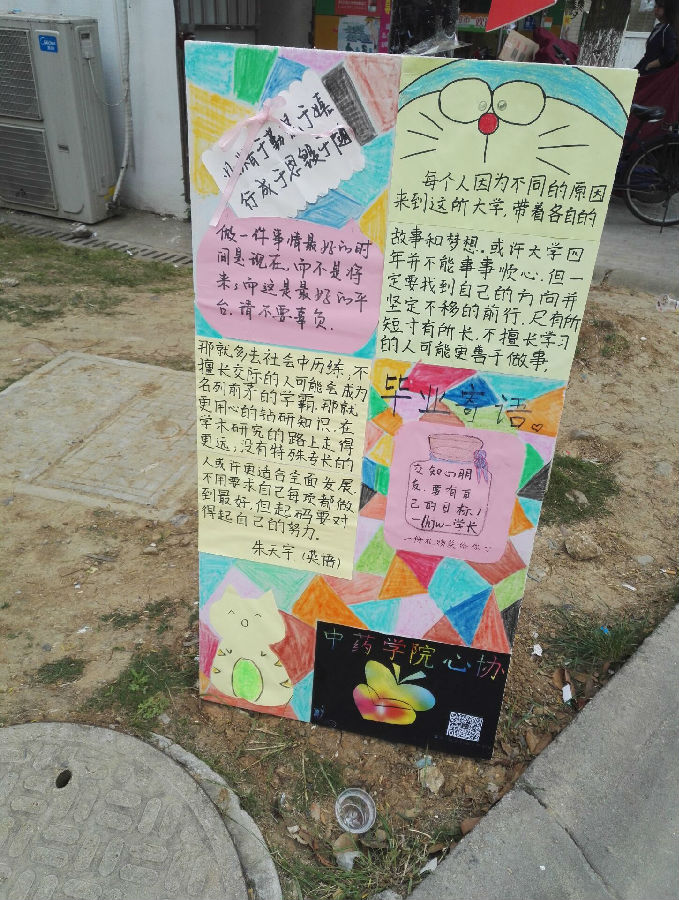 于勤于嬉
行成于思毁于随
做一件事情最好的时
间是现在,而不是将
来;而这是最好的平
台,请不要辜负.
每个人因为不同的原因
来到这所大学.带着各自的
故事和梦想.或许大学四
年并不能事事顺心.但一
定要找到自己的方向并
坚定不移的前行.尺有所
短寸有所长.不擅长学习
的人可能更善于做事.
那就多去社会中历练,不
擅长交际的人可能会成为
名列前茅的学霸.那就
更用心的钻研知识.在
学术研究的路上走得
更远;没有特殊专长的
人或许更适合全面发展.
不用要求自己每项都做
到最好,但起码要对
得起自己的努力.
朱天宇.(英语)
毕业寄语
交知心朋
友,要有自
己的目标!
学长
中药学院心协
Midea